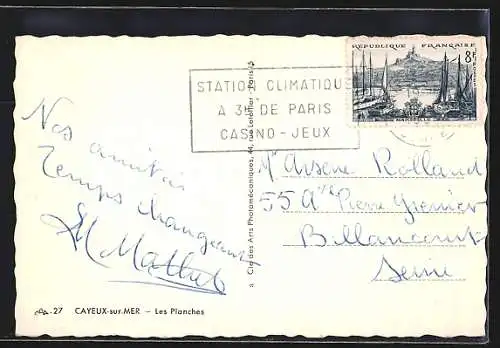 Nos amitiés
Temps changeant
M Mathé
27 CAYEUX-sur-MER – Les Planches
Cie des Arts Photomécaniques, 44, rue Letellier - Paris
STATION CLIMATIQUE
A 3H DE PARIS
CASINO - JEUX
REPUBLIQUE FRANÇAISE
8F
MARSEILLE
Mr Arsène Rolland
55 Ave Pierre Grenier
Billancourt
Seine